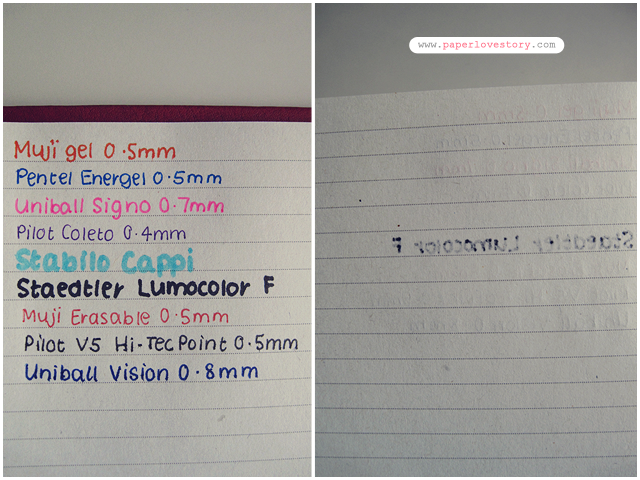 Muji gel 0.5mm
Pentel Energel 0.5mm
Uniball Signo 0.7mm
Pilot Coleto 0.4mm
Stabilo Cappi
Staedtler Lumocolor F
Muji Erasable 0.5mm
Pilot V5 Hi-Tec Point 0.5mm
Uniball Vision 0.8mm
www.paperlovestory.com
Staedtler Lumocolor F